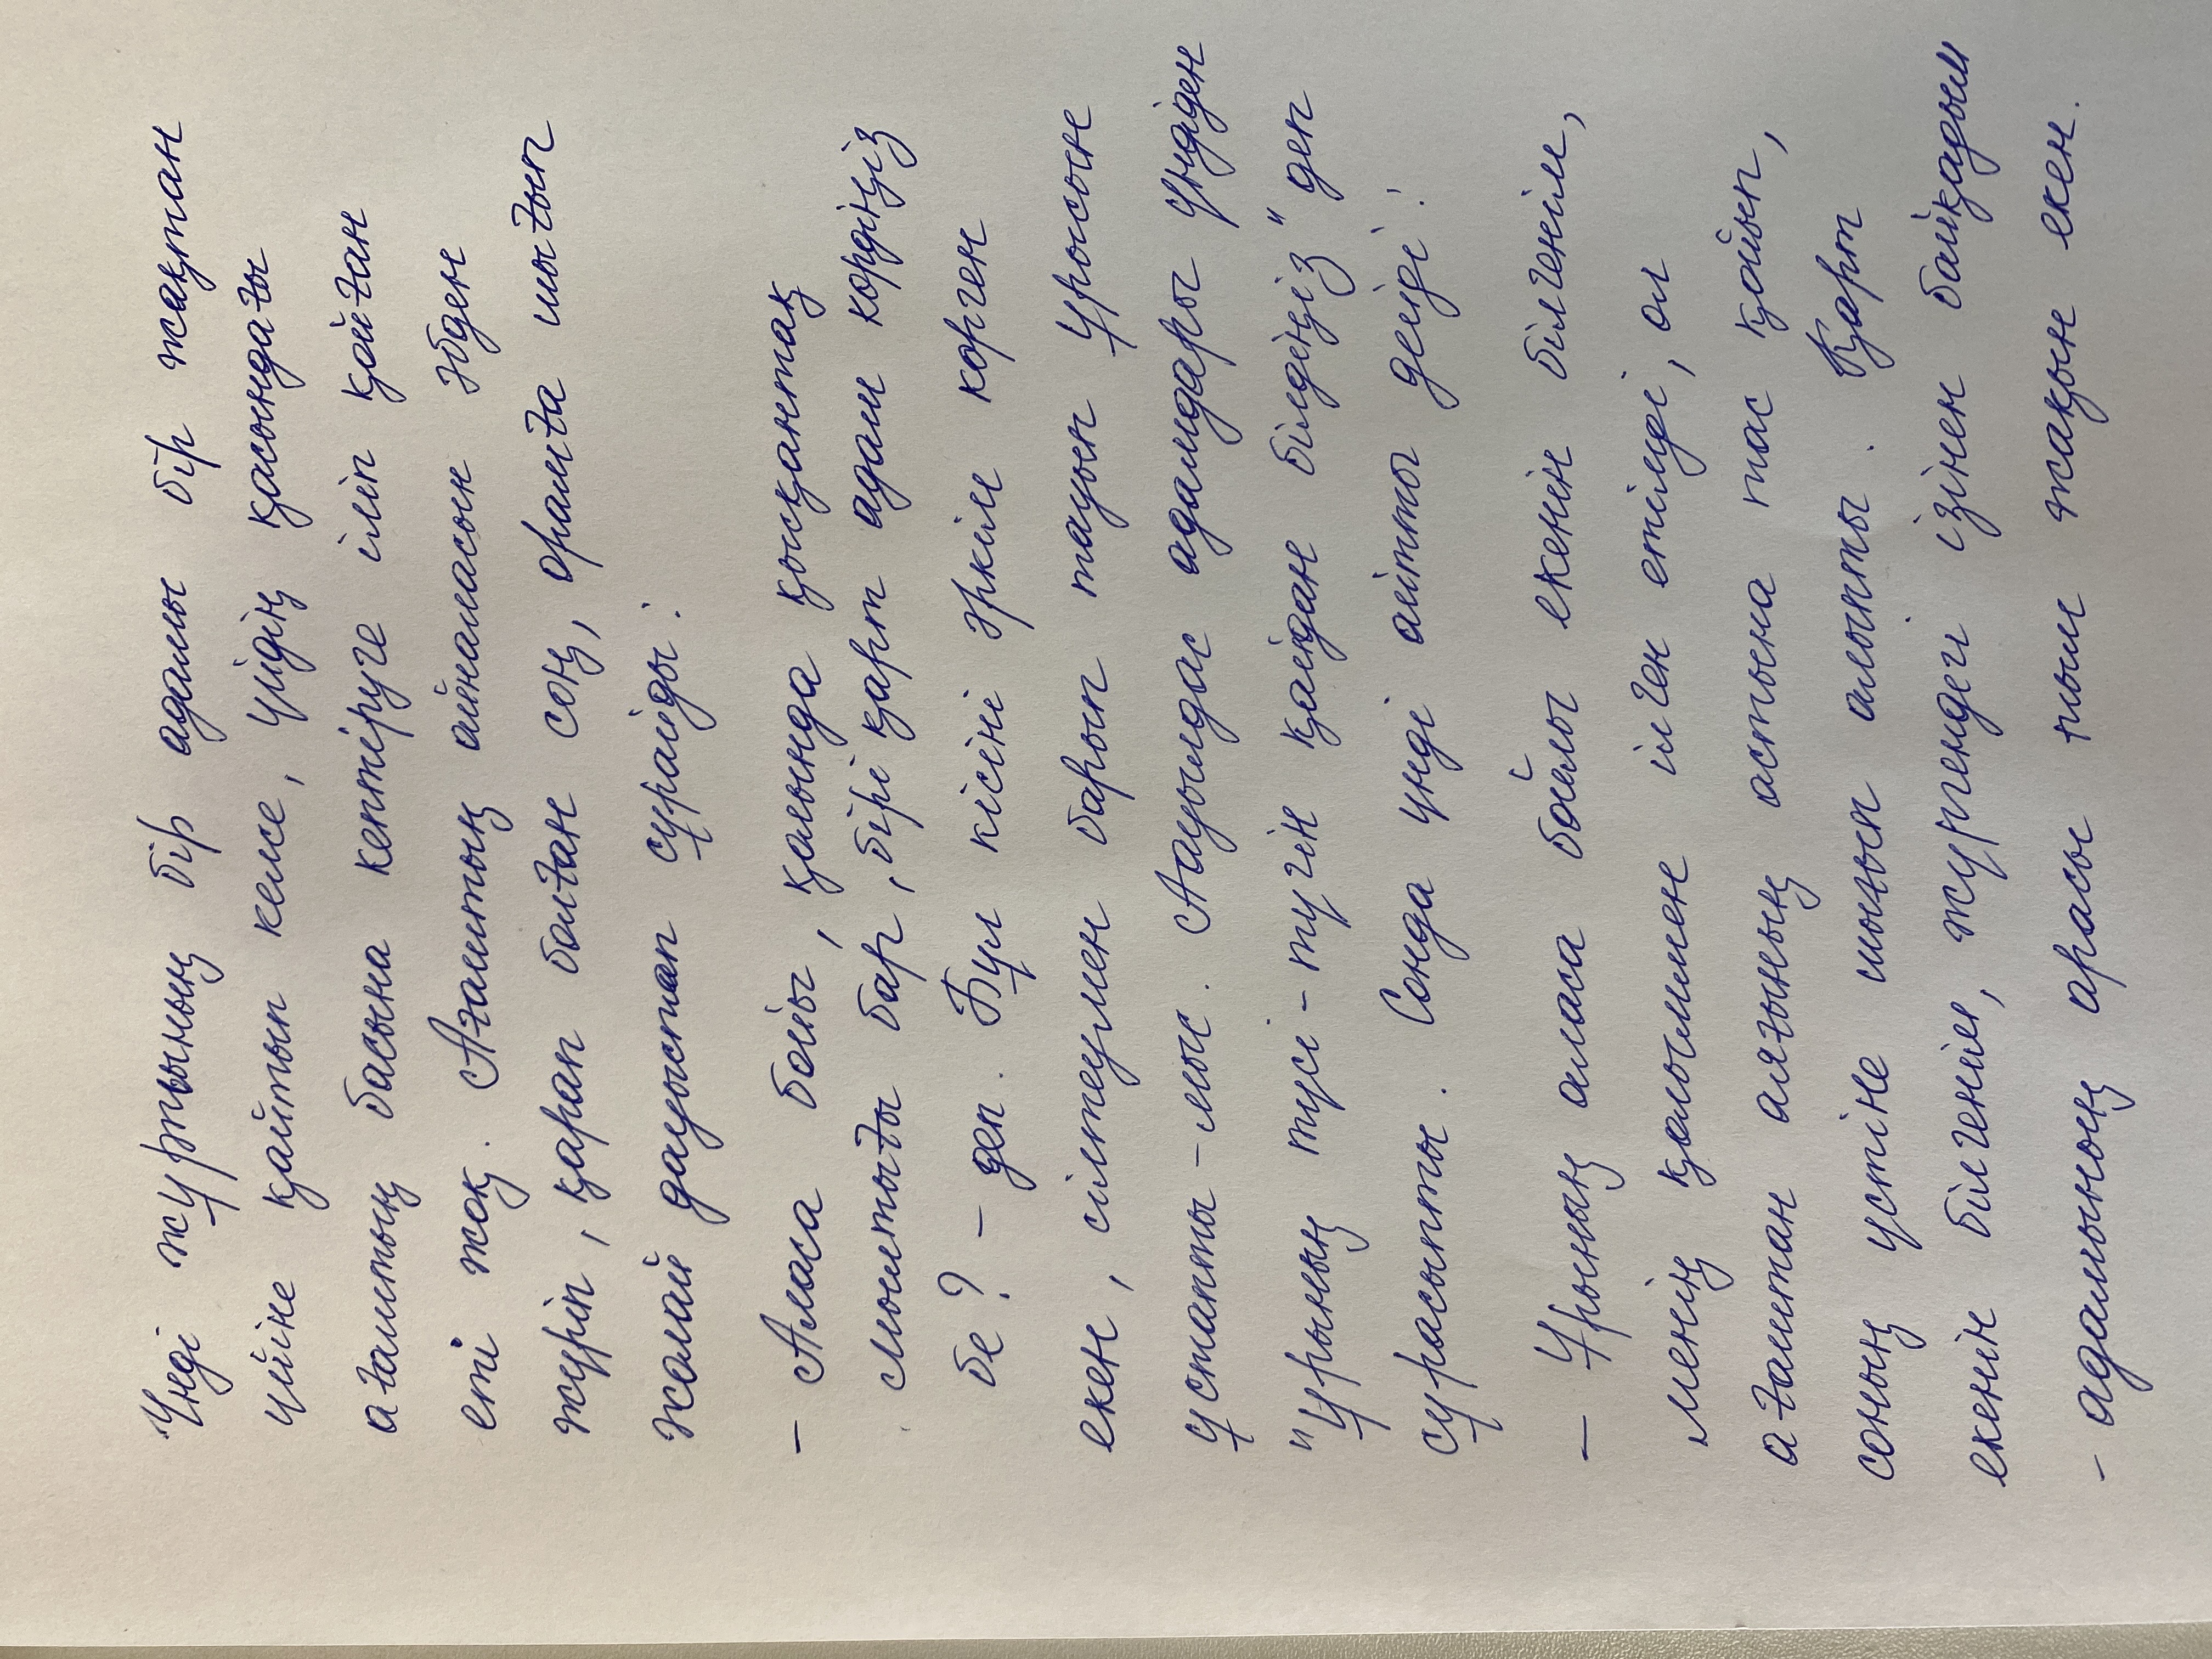 Үнді жұртының бір адамы бір жақтан
үйіне қайтып келсе, үйдің қасындағы
ағаштың басына кептіруге іліп қойған
еті жоқ. Ағаштың айналасын әбден
жүріп, қарап болған соң, орманға шығып
жолай дауыстап сұрайды:
- Аласа бойлы, қолында қысқантақ
мылтығы бар, бірі қарт адам көрдіңіз
бе? - деп. Бұл кісіні әркім көрген
екен, сілтеумен барып тауып ұрысын
ұстапты-мыс. Ауылдас адамдары үндіден
"ұрының түсі-түгін қайдан білдіңіз" деп
сұрасыпты. Сонда үнді айтты дейді:
- Ұрының аласа бойлы екенін білгенім,
менің қолыммен ілген етімді, ол
ағаштан алғының астына тас қойып,
соның үстіне шығып алыпты. Қарт
екенін білгенім, жүргендегі ізінен байқадым
- адымының арасы тым жақын екен.